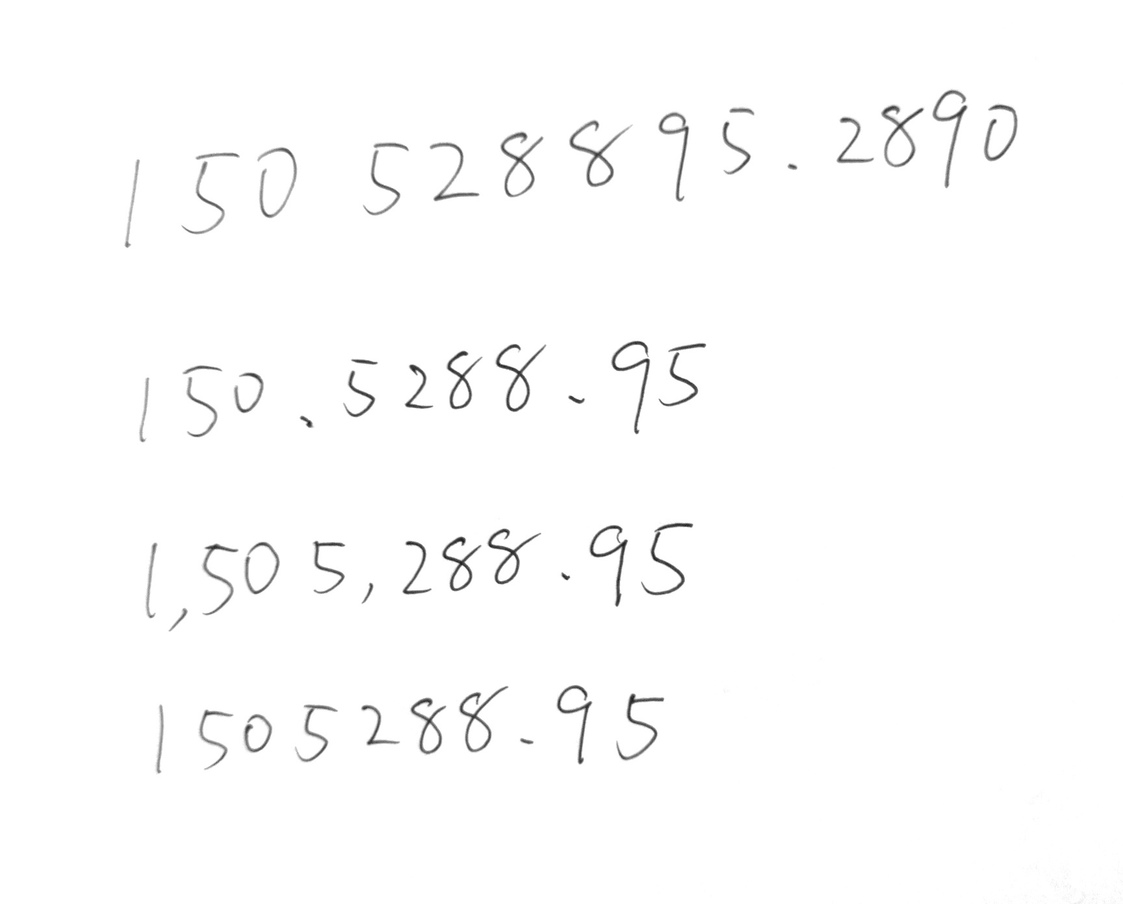 150 52889 5.2890
150.5288.95
1,505,288.95
1505288.95